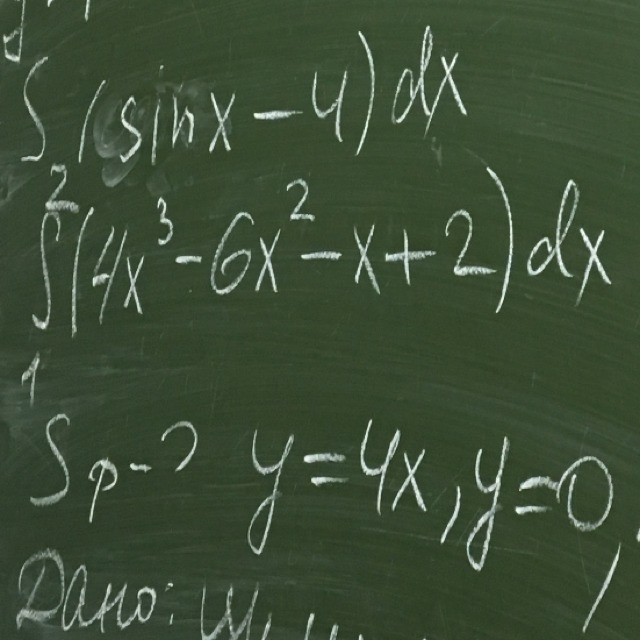 ∫(sinx - 4)dx
2
∫(4x³ - 6x² - x + 2)dx
1
Sф-? y = 4x, y = 0,
Дано: